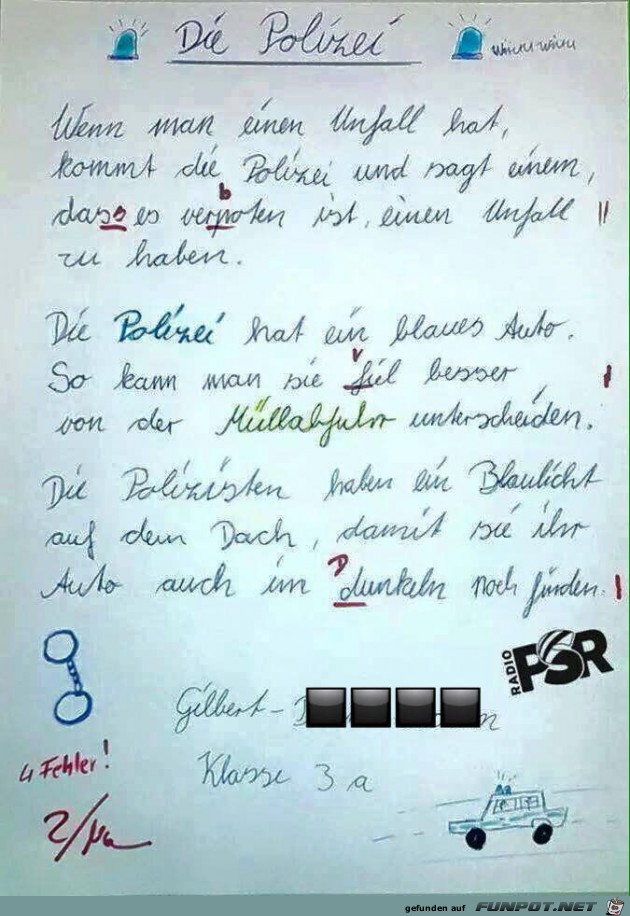 Die Polizei
wiuu wiuu
Wenn man einen Unfall hat,
kommt die Polizei und sagt einem,
b
dass es verpoten ist, einen Unfall ||
zu haben.
Die Polizei hat ein blaues Auto.
v
So kann man sie fiel besser |
von der Müllabfuhr unterscheiden.
Die Polizisten haben ein Blaulicht
auf dem Dach, damit sie ihr
D
Auto auch im dunkeln noch finden. |
RADIO PSR
Gilbert-
Klasse 3a
4 Fehler!
2/
gefunden auf FUNPOT.NET